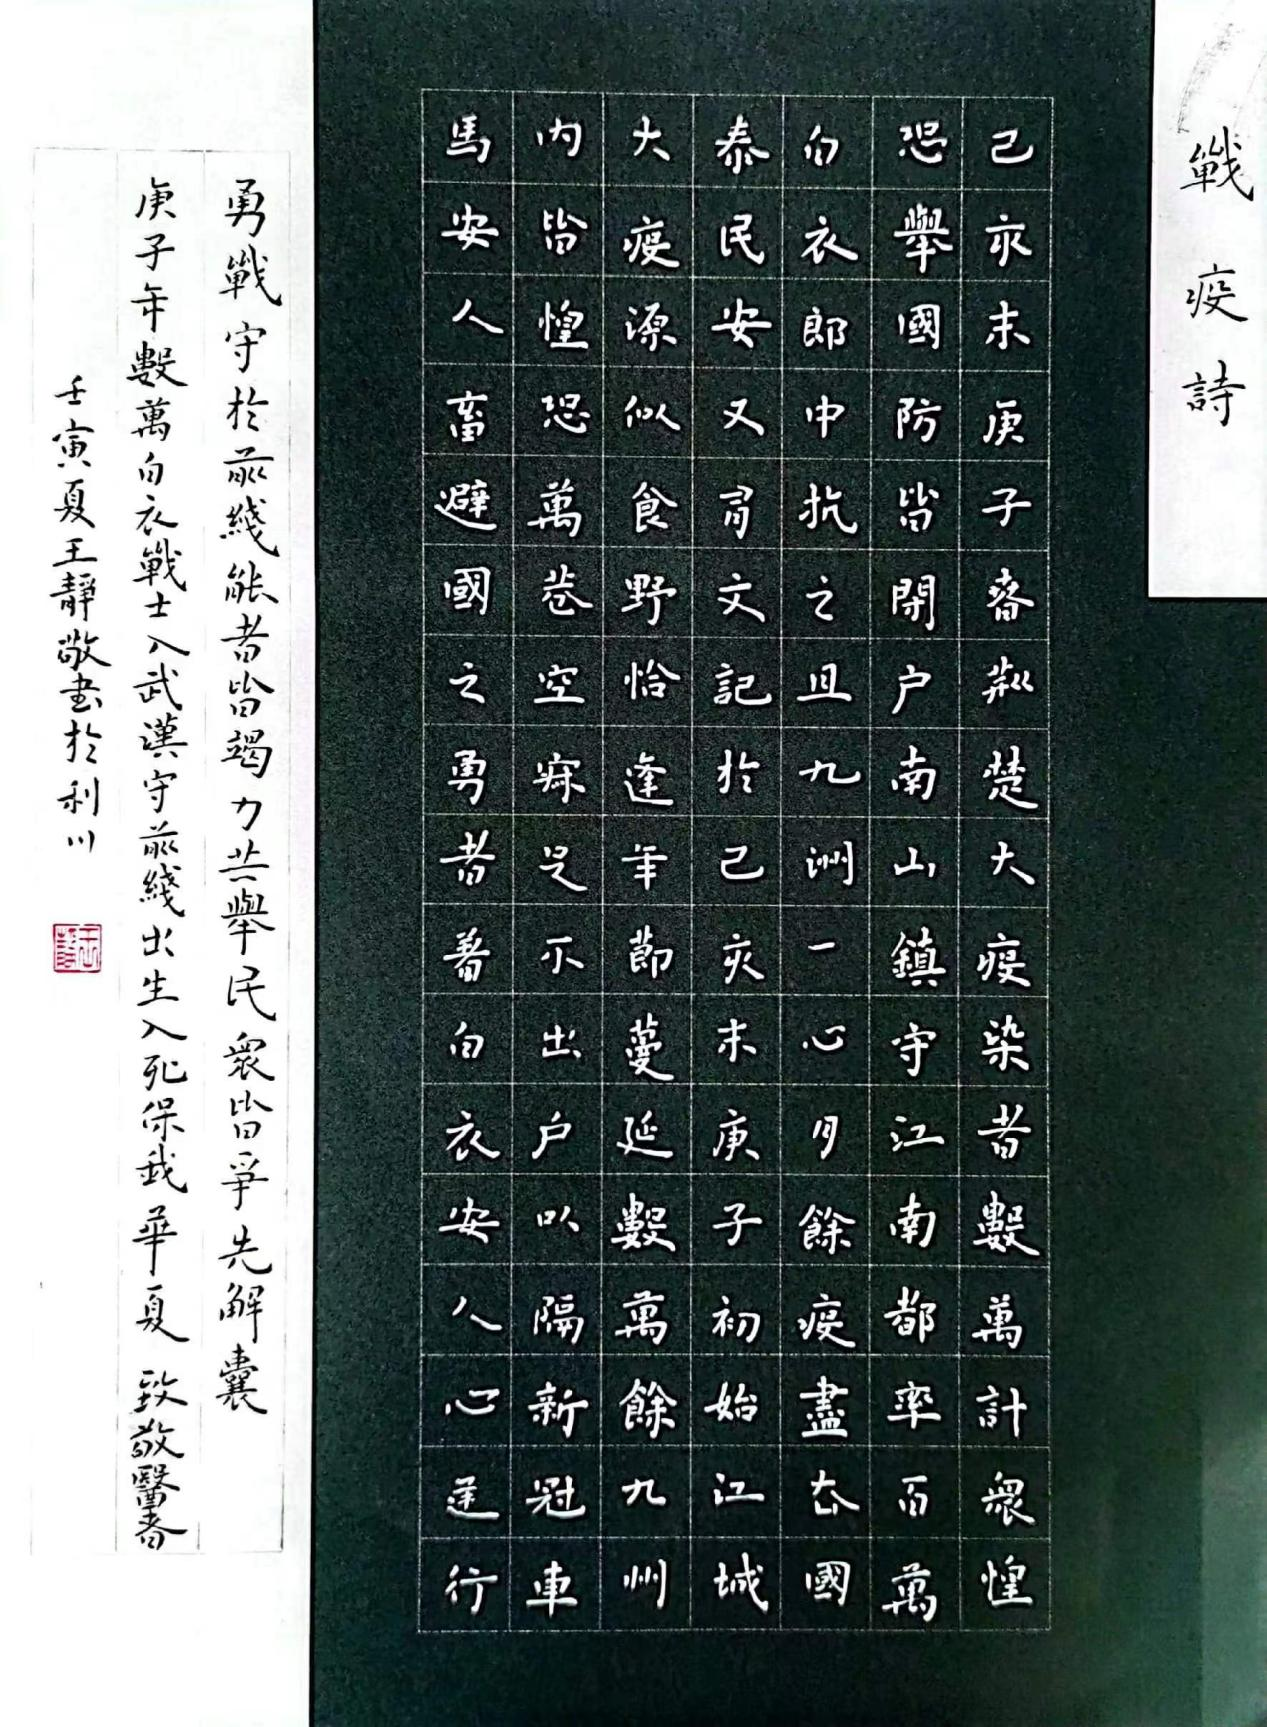 戰疫詩
己亥末庚子春荊楚大疫染者數萬計衆惶
恐舉國防皆閉户南山鎮守江南都率百萬
白衣郎中抗之且九洲一心月餘疫盡去國
泰民安又有文記於己亥末庚子初始江城
大疫源似食野恰逢年節蔓延數萬餘九州
内皆惶恐萬巷空寂足不出户以隔新冠車
馬安人畜避國之勇者着白衣安人心逆行
勇戰守於前綫能者皆竭力共舉民衆皆爭先解囊
庚子年數萬白衣戰士入武漢守前綫出生入死保我華夏致敬醫者
壬寅夏王靜敬書於利川